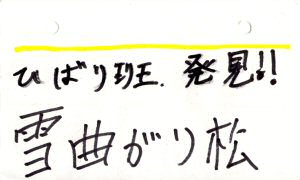 ひばり班.発見!!
雪曲がり松